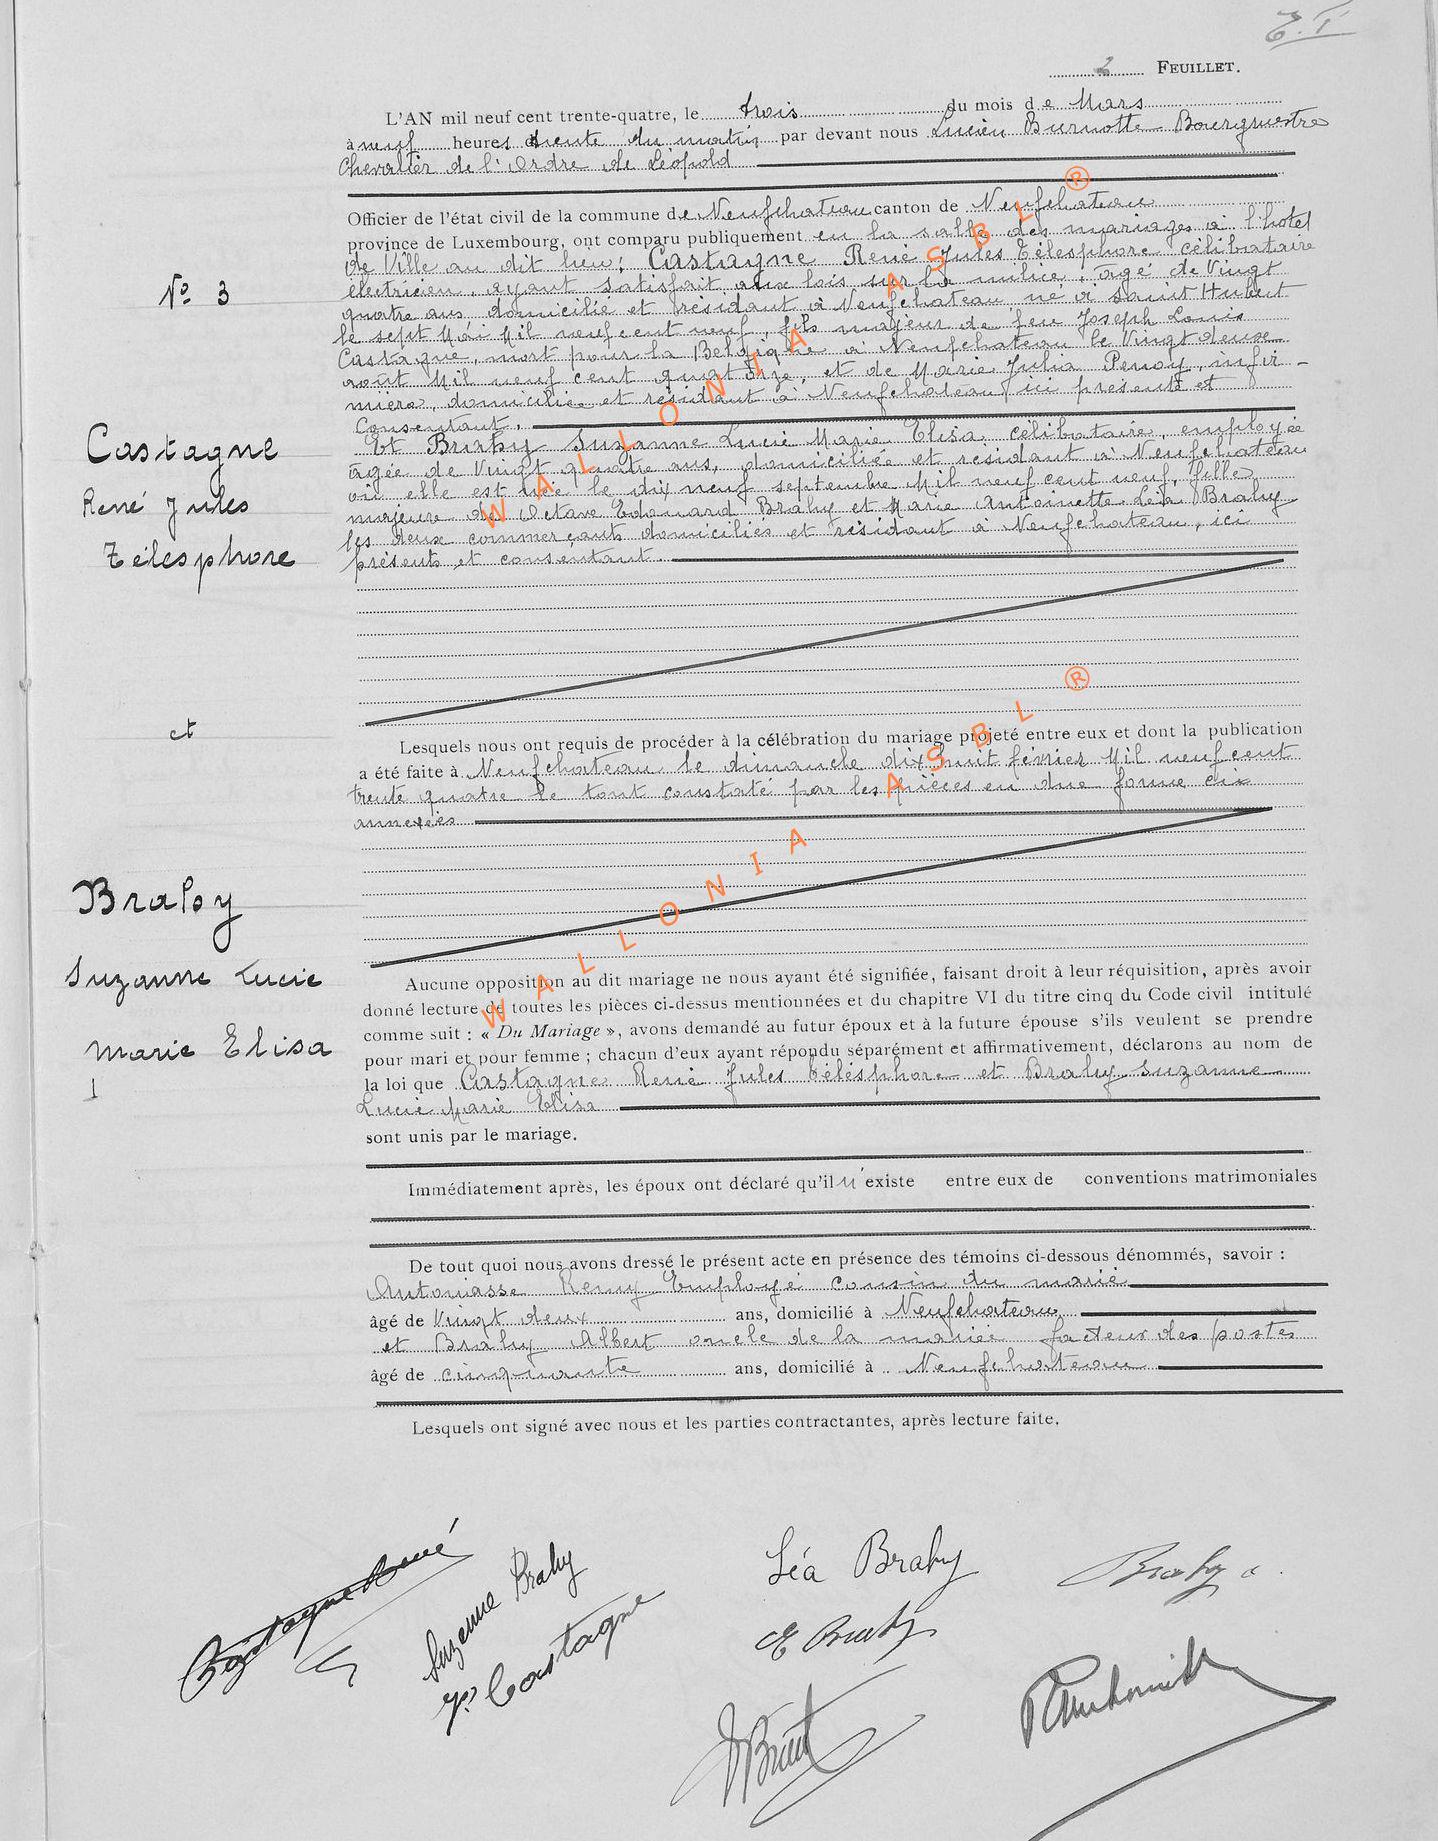 2 FEUILLET.
L'AN mil neuf cent trente-quatre, le trois du mois de Mars
à neuf heures trente du matin par devant nous Lucien Burnotte Bourgmestre
Chevalier de l'Ordre de Léopold
Officier de l'état civil de la commune de Neufchateau canton de Neufchateau
province de Luxembourg, ont comparu publiquement en la salle des mariages à l'hotel
de Ville au dit lieu: Castagne René Jules Télesphore célibataire
électricien, ayant satisfait aux lois sur la milice, agé de Vingt
quatre ans domicilié et résidant à Neufchateau né à Saint Hubert
le sept Mai Mil neuf cent neuf, fils majeur de feu Joseph Louis
Castagne, mort pour la Belgique à Neufchateau le Vingt deux
août Mil neuf cent quatorze, et de Marie Julia Penoy, infir-
mière, domiciliée et résidant à Neufchateau ici présente et
Consentant.
Et Brahy Suzanne Lucie Marie Elisa, célibataire, employée
âgée de Vingt quatre ans, domiciliée et résidant à Neufchateau
où elle est née le dix neuf septembre Mil neuf cent neuf, fille
majeure de Octave Edouard Brahy et Marie Antoinette Léa Brahy
les deux commerçants domiciliés et résidant à Neufchateau, ici
présents et consentant
Lesquels nous ont requis de procéder à la célébration du mariage projeté entre eux et dont la publication
a été faite à Neufchateau le dimanche dix huit février Mil neuf cent
trente quatre le tout constaté par les pièces en due forme ci
annexées
Aucune opposition au dit mariage ne nous ayant été signifiée, faisant droit à leur réquisition, après avoir
donné lecture de toutes les pièces ci-dessus mentionnées et du chapitre VI du titre cinq du Code civil intitulé
comme suit : « Du Mariage », avons demandé au futur époux et à la future épouse s'ils veulent se prendre
pour mari et pour femme ; chacun d'eux ayant répondu séparément et affirmativement, déclarons au nom de
la loi que Castagne René Jules Télésphore et Brahy Suzanne
Lucie Marie Elisa
sont unis par le mariage.
Immédiatement après, les époux ont déclaré qu'il n'existe entre eux de conventions matrimoniales
De tout quoi nous avons dressé le présent acte en présence des témoins ci-dessous dénommés, savoir :
Antoniasse Remy Employé cousin du marié
âgé de Vingt deux ans, domicilié à Neufchateau
et Brahy Albert oncle de la mariée facteur des postes
âgé de cinquante ans, domicilié à Neufchateau
Lesquels ont signé avec nous et les parties contractantes, après lecture faite.
No 3
Castagne
René Jules
Télesphore
et
Brahy
Suzanne Lucie
Marie Elisa
WALLONIA ASBL ®
WALLONIA ASBL ®
Castagne René
Suzanne Brahy
Castagne
Léa Brahy
E Brahy
Brahy a.